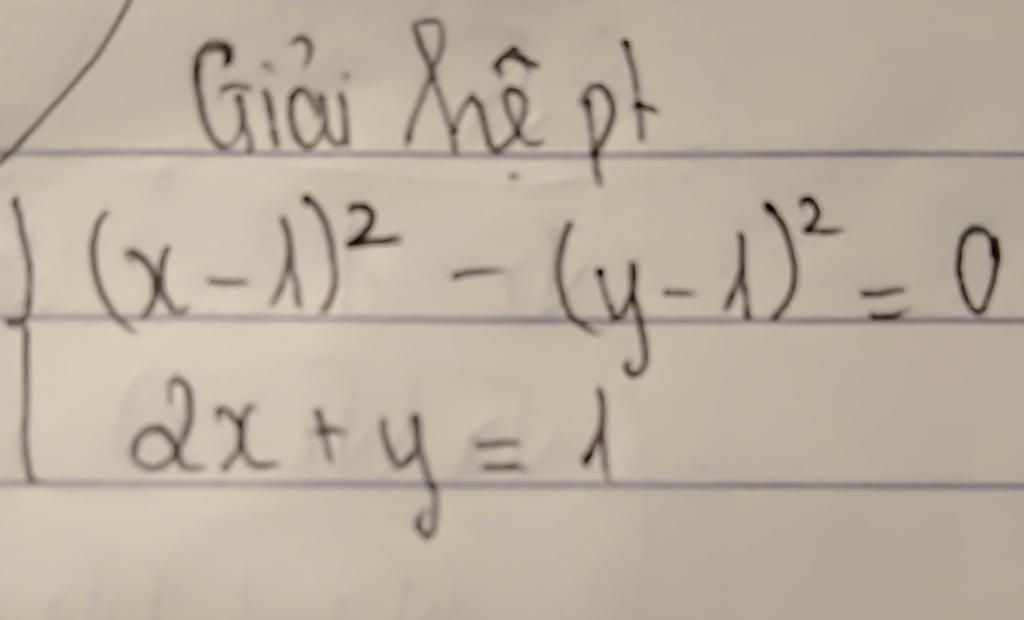 Giải hệ pt
(x-1)² - (y-1)² = 0
2x + y = 1